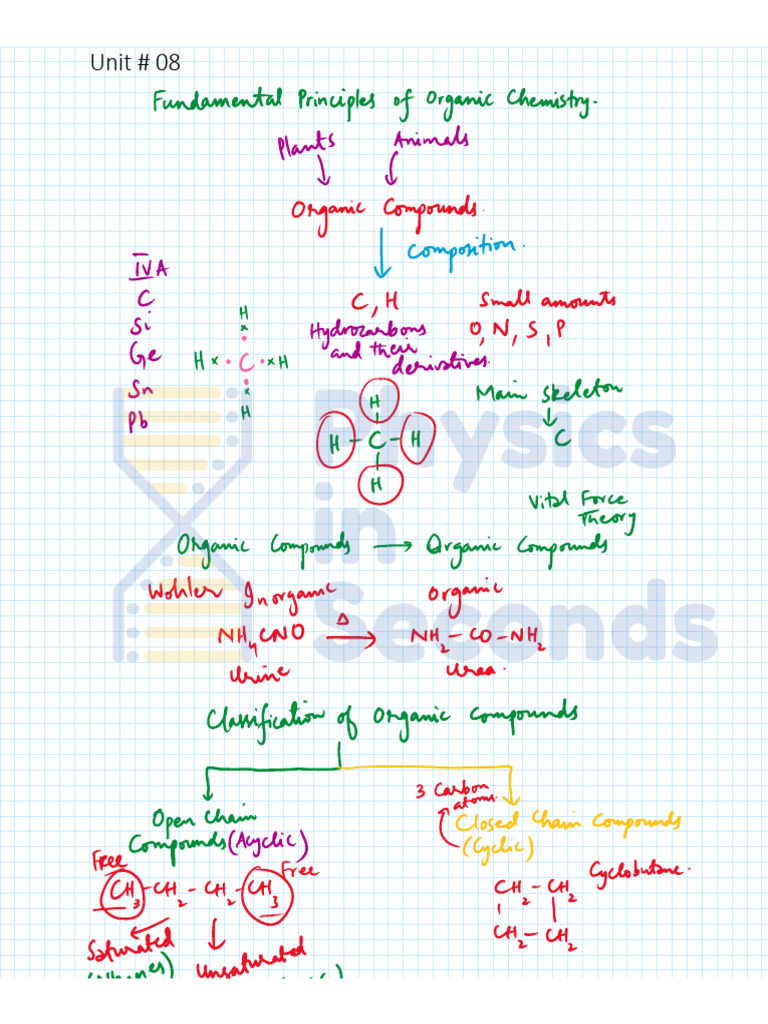 Unit # 08
Fundamental Principles of Organic Chemistry.
Plants Animals
Organic Compounds.
Composition.
IVA
C
Si
Ge
Sn
Pb
H
H x · C · x H
x
H
C, H
Hydrocarbons
and their
derivatives.
Small amounts
O, N, S, P
Main skeleton
C
H
H - C - H
H
Physics
in
Seconds
Vital Force
Theory
Organic Compounds → Organic Compounds
Wohler Inorganic Organic
NH4CNO Δ → NH2 - CO - NH2
Urine Urea.
Classification of Organic Compounds
Open Chain
Compounds (Acyclic)
3 Carbon
atoms.
Closed Chain Compounds
(Cyclic)
Free Free
CH3 - CH2 - CH2 - CH3
Saturated Unsaturated
Cyclobutane.
CH2 - CH2
CH2 - CH2